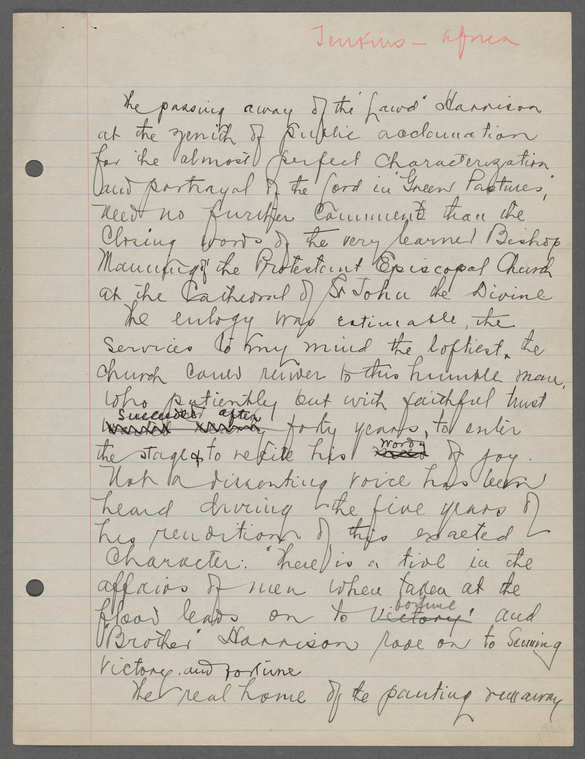 Jenkins - Africa
The passing away of the "Lawd" Harrison
at the zenith of public acclamation
for the almost perfect characterization
and portrayal of the Lord in "Green Pastures",
need no further comment than the
closing words of the very learned Bishop
Manning of the Protestant Episcopal Church
at the Cathedral of St John the Divine
The eulogy was estimable, the
services to my mind the loftiest, the
church could render to this humble man,
who patiently but with faithful trust
succeeded after
forty years, to enter
the stage & to recite his words of joy.
Not a dissenting voice has been
heard during the five years of
his rendition of this exacted
Character. "There is a tide in the
affairs of men when taken at the
fortune
flood leads on to victory" and
"Brother" Harrison rode on to
victory and fortune
The real home of the panting runaway